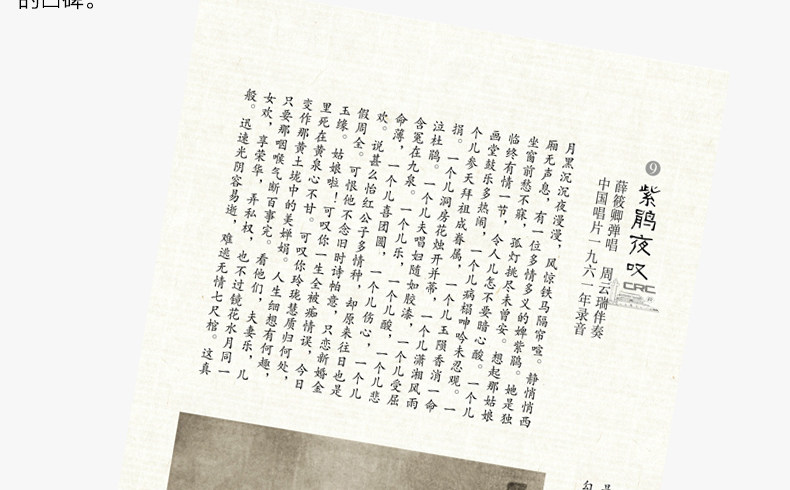 的口碑。
⑨ 紫鹃夜叹
薛筱卿弹唱 周云瑞伴奏
中国唱片一九六一年录音
CRC
月黑沉沉夜漫漫，风惊铁马隔帘喧。静悄悄西
厢无声息，有一位多情多义的婢紫鹃。她是独
坐窗前愁不寐，孤灯挑尽未曾安。想起那姑娘
临终有情一节，令人儿怎不要暗心酸。一个儿
画堂鼓乐多热闹，一个儿病榻呻吟未忍观。一
个儿参天拜祖成眷属，一个儿玉陨香消一命
捐。一个儿洞房花烛开并蒂，一个儿潇湘风雨
泣杜鹃。一个儿夫唱妇随如胶漆，一个儿受屈
含冤在九泉。一个儿乐，一个儿酸，一个儿悲
命薄，一个儿喜团圆，一个儿伤心，一个儿
欢。说甚么怡红公子多情种，却原来往日也是
假周全。可恨他不念旧时诗帕意，只恋新婚金
玉缘。姑娘啦！可叹你一生全被痴情误，今日
里死在黄泉心不甘。可叹你玲珑慧质归何处，
变作那黄土垅中的美婵娟。人生细想有何趣，
只要那咽喉气断百事完。看他们，夫妻乐，儿
女欢，享荣华，弄私权，也不过镜花水月同一
般。迅速光阴容易逝，难逃无情七尺棺。这真